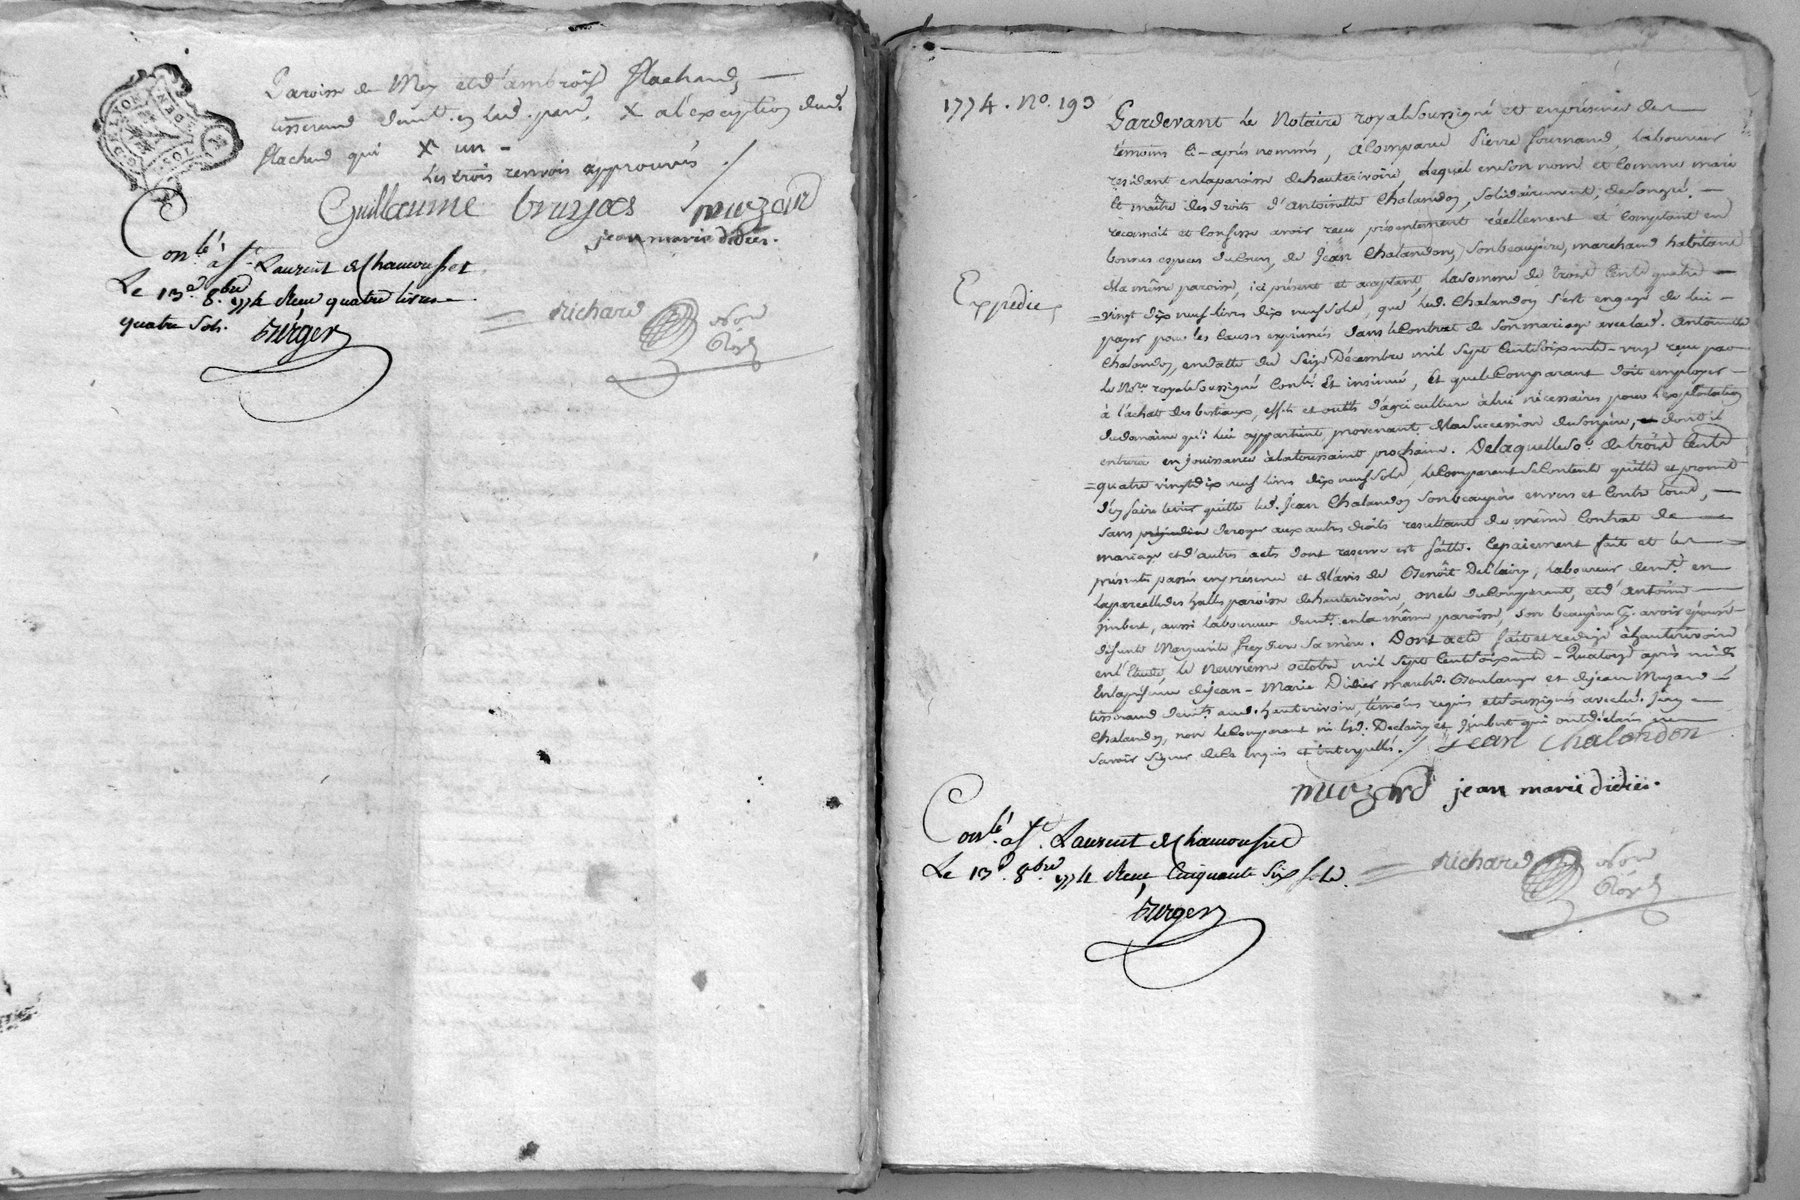 Paroisse de Mey et d'ambroise flachand,
tisserand demt. en lad. parsse. X a l'exception dud.
flachand qui X un -
Les trois renvois approuvés /
Guillaume bruyas muzard
jean marie didier.
Conlé à St. Laurent de Chamousset
Le 13e. 8bre 1774 Reçu quatre livres
quatre sols.
Burger
Richard
Nore
Roy.l
G. DE LYON
1774. No. 193
Pardevant Le Notaire royal Soussigné et en présence des
témoins ci-après nommés, a Comparu Pierre fournand, laboureur
résidant en la paroisse de hauterivoire, lequel en Son nom et Comme mari
et maître des droits d'Antoinette Chalandon, Solidairement, de Son gré,
reconnoit et Confesse avoir reçu présentement réellement et Comptant en
bonnes especes du Cours, de Jean Chalandon, Son beaupère, marchand habitant
de la même paroisse, ici présent et acceptant, la Somme de trois Cents quatre
Expediée
=vingt dix neuf livres dix neuf Sols, que led. Chalandon S'est engagé de lui
payer pour les Causes exprimées dans le Contrat de Son mariage avec lad. Antoinette
Chalandon, en datte du Seize Décembre mil Sept Cent Soixante- reçu par
le Nore royal Soussigné Conlé. Et insinué, Et que le Comparant doit employer
à l'achat des bestiaux, effets et outils d'agriculture à lui nécessaires pour l'exploitation
du domaine qui lui appartient provenant de la Succession de Son père, dont il
entrera en jouissance à la toussaint prochaine. De laquelle So.e de trois Cents
=quatre vingt dix neuf livres dix neuf Sols, le Comparant Se Contente quitte et promet
d'en faire tenir quitte led. Jean Chalandon Son beaupère envers et Contre tous,
Sans préjudice deroger aux autres droits resultant du même Contrat de
mariage et d'autres acts dont reserve est faitte. Ce paiement fait et les
présentes passées en présence et de l'avis de Benoît Declairy, laboureur demt. en
la parcelle des halles paroisse de hauterivoire, oncle du Comparant, et d'Antoine
Jimbert, aussi laboureur demt. en la même paroisse, Son beaupère p. avoir épousé
défunte Marguerite Sa mère. Dont acte fait et redigé à hauterivoire
en l'Etude, le neuvieme octobre mil Sept Cent Soixante-Quatorze après midi
En la présence de jean-Marie Didier march. Boulanger et de jean Muzard
tisserand demts. aud. hauterivoire, témoins requis et Soussignés avec led. Jean
Chalandon, non le Comparant ni lesd. Declairy et Jimbert qui ont déclaré ne
Savoir Signer de Ce enquis et interpellés. / Jean Chalandon
muzard jean marie didier.
Conlé. à St. Laurent de Chamousset
Le 13e 8bre. 1774 Reçu Cinquante Six Sols.
Burger
Richard
Nore
Roy.l